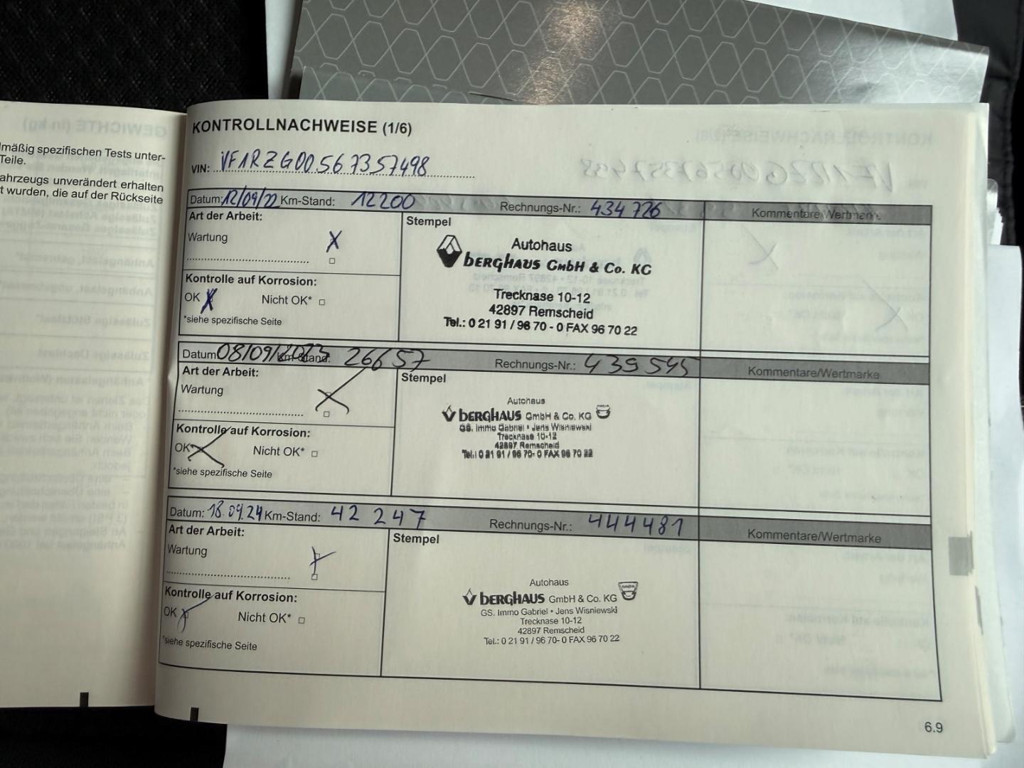 lmäßig spezifischen Tests unter-
Teile.
ahrzeugs unverändert erhalten
t wurden, die auf der Rückseite
KONTROLLNACHWEISE (1/6)
VIN: VF1RZG00567357498
Datum: 12/09/22 Km-Stand: 12200 Rechnungs-Nr.: 434726 Kommentare/Wertmarke
Art der Arbeit: Stempel
Wartung X
Autohaus
BERGHAUS GmbH & Co. KG
Trecknase 10-12
42897 Remscheid
Tel.: 0 21 91 / 96 70 - 0 FAX 96 70 22
Kontrolle auf Korrosion:
OK X Nicht OK*
*siehe spezifische Seite
Datum: 08/09/2023 Km-Stand: 26657 Rechnungs-Nr.: 439545 Kommentare/Wertmarke
Art der Arbeit: Stempel
Wartung X
Autohaus
BERGHAUS GmbH & Co. KG
GS. Immo Gabriel • Jens Wisniewski
Trecknase 10-12
42897 Remscheid
Tel.: 0 21 91 / 96 70- 0 FAX 96 70 22
Kontrolle auf Korrosion:
OK X Nicht OK*
*siehe spezifische Seite
Datum: 18.09.24 Km-Stand: 42 247 Rechnungs-Nr.: 444481 Kommentare/Wertmarke
Art der Arbeit: Stempel
Wartung X
Autohaus
BERGHAUS GmbH & Co. KG
GS. Immo Gabriel • Jens Wisniewski
Trecknase 10-12
42897 Remscheid
Tel.: 0 21 91 / 96 70- 0 FAX 96 70 22
Kontrolle auf Korrosion:
OK X Nicht OK*
*siehe spezifische Seite
6.9